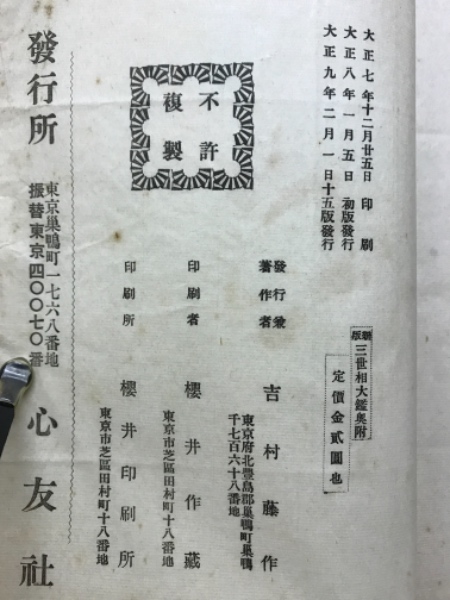 大正七年十二月廿五日印刷
大正八年一月五日初版發行
大正九年二月一日十五版發行
不許
複製
三世相大鑑奧附
定價金貳圓也
發行兼
著作者
吉村藤作
東京府北豐島郡巢鴨町巢鴨
千七百六十八番地
印刷者
櫻井作藏
東京市芝區田村町十八番地
印刷所
櫻井印刷所
東京市芝區田村町十八番地
發行所
東京巢鴨町一七六八番地
振替東京四〇〇七〇番
心友社